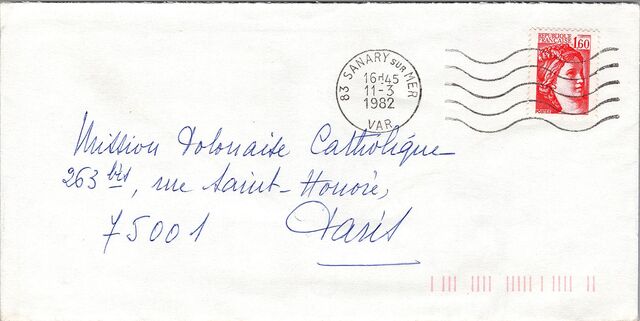 REPUBLIQUE FRANÇAISE
1,60
83 SANARY SUR MER
16H45
11-3
1982
VAR
Mission Polonaise Catholique
263 bis, rue Saint-Honoré,
75001 Paris